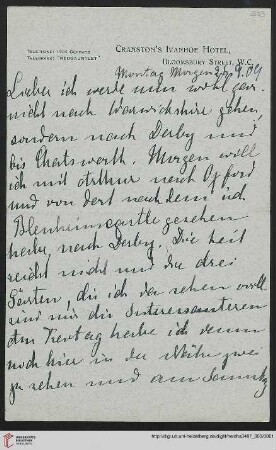 TELEPHONE 1908 GERRARD
CRANSTON'S IVANHOE HOTEL,
BLOOMSBURY STREET, W.C.
Montag Morgen 9.09
Lieber ich werde nun wohl gar
nicht nach Warwickshire gehen,
sondern nach Derby und
bis Chatsworth. Morgen will
ich mit Arthur nach Oxford
und von dort nachdem ich
Blenheimcastle gesehen
habe, nach Derby. Die Zeit
reicht nicht und die drei
Gärten, die ich da sehen will
sind mir die Interessanteren
Am Freitag habe ich dann
noch hier in der Nähe zwei
zu sehen und am Sonntag